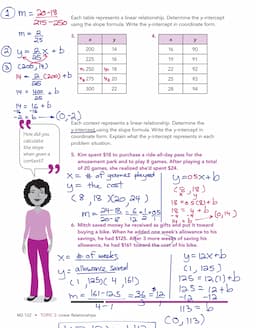 ① m = 20-18
275-250
m = 2
25
② y = 2/25 x + b
③ (200, 14)
14 = 2/25 (200) + b
14 = 400/25 + b
14 = 16 + b
-2 = b → (0, -2)
Each table represents a linear relationship. Determine the y-intercept
using the slope formula. Write the y-intercept in coordinate form.
3.
x y
200 14
225 16
250 18
275 20
300 22
4.
x y
16 90
19 91
22 92
25 93
28 94
How did you
calculate
the slope
when given a
context?
Each context represents a linear relationship. Determine the
y-intercept using the slope formula. Write the y-intercept in
coordinate form. Explain what the y-intercept represents in each
problem situation.
5. Kim spent $18 to purchase a ride-all-day pass for the
amusement park and to play 8 games. After playing a total
of 20 games, she realized she'd spent $24.
x = # of games played
y = the cost
(8, 18) (20, 24)
m = 24-18 = 6 = 1 = 0.5
20-8 12 2
y = 0.5x + b
(8, 18)
18 = 0.5(8) + b
18 = 4 + b
-4 -4
14 = b
(0, 14)
6. Mitch saved money he received as gifts and put it toward
buying a bike. When he added one week's allowance to his
savings, he had $125. After 3 more weeks of saving his
allowance, he had $161 toward the cost of his bike.
x = # of weeks
y = allowance saved
(1, 125) (4, 161)
m = 161-125 = 36 = 12
4-1
y = 12x + b
(1, 125)
125 = 12(1) + b
125 = 12 + b
-12 -12
113 = b
(0, 113)
TOPIC 2: Linear Relationships